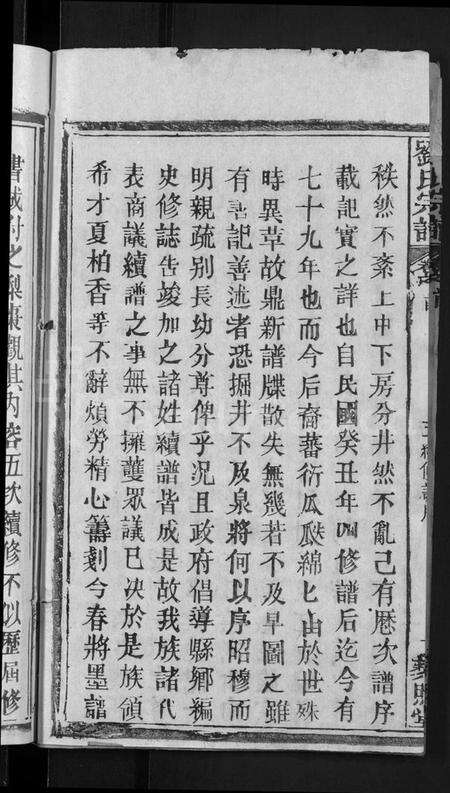 劉氏宗譜
秩然不紊上中下房分井然不亂己有厯次譜序
載記實之詳也自民國癸丑年四修譜后迄今有
七十九年也而今后裔蕃衍瓜瓞綿匕由於世殊
時異草故鼎新譜牒散失無幾若不及早圖之雖
有善記善述者恐掘井不及泉將何以序昭穆而
明親疏别長幼分尊俾乎况且政府倡導縣鄉編
史修誌告竣加之諸姓續譜皆成是故我族諸代
表商議續譜之事無不擁護眾議已决於是族領
希才夏柏香等不辭煩勞精心籌划今春將墨譜
書城付之梨棗觀其內容五次續修不以歷屆修